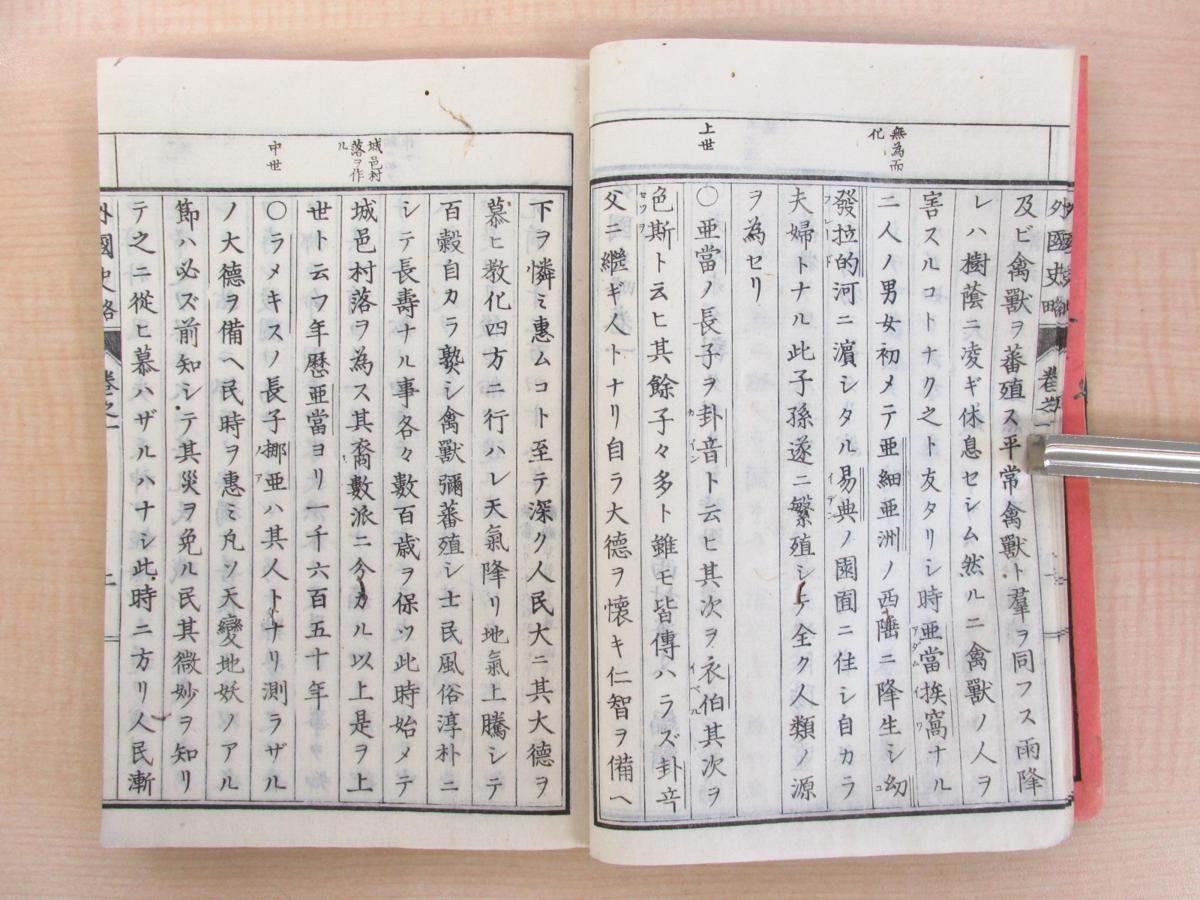 外國史略 卷之一
無為而
化
上世
及ビ禽獸ヲ蕃殖ス平常禽獸ト羣ヲ同フス雨降
レハ樹蔭ニ凌ギ休息セシム然ルニ禽獸ノ人ヲ
害スルコトナク之ト友タリシ時亜當挨窩ナル
アダム イワ
二人ノ男女初メテ亜細亜洲ノ西陲ニ降生シ幼
發拉的河ニ濵シタル易典ノ園囿ニ住シ自カラ
フレート イデン
夫婦トナル此子孫遂ニ繁殖シテ全ク人類ノ源
ヲ為セリ
〇亜當ノ長子ヲ卦音ト云ヒ其次ヲ衣伯其次ヲ
カイン イベル
色斯ト云ヒ其餘子々多ト雖モ皆傳ハラズ卦音
セツヲ
父ニ繼ギ人トナリ自ラ大德ヲ懐キ仁智ヲ備ヘ
城邑村
落ヲ作
ル
中世
下ヲ憐ミ惠ムコト至テ深ク人民大ニ其大德ヲ
慕ヒ教化四方ニ行ハレ天氣降リ地氣上騰シテ
百穀自カラ熟シ禽獸彌蕃殖シ士民風俗淳朴ニ
シテ長壽ナル事各々數百歳ヲ保ツ此時始メテ
城邑村落ヲ為ス其裔數派ニ分カル以上是ヲ上
世ト云フ年歴亜當ヨリ一千六百五十年
〇ラメキスノ長子挪亜ハ其人トナリ測ラザル
ノア
ノ大德ヲ備ヘ民時ヲ惠ミ凡ソ天變地妖ノアル
節ハ必ズ前知シテ其災ヲ免ル民其微妙ヲ知リ
テ之ニ從ヒ慕ハザルハナシ此時ニ方リ人民漸
外國史略 卷之一